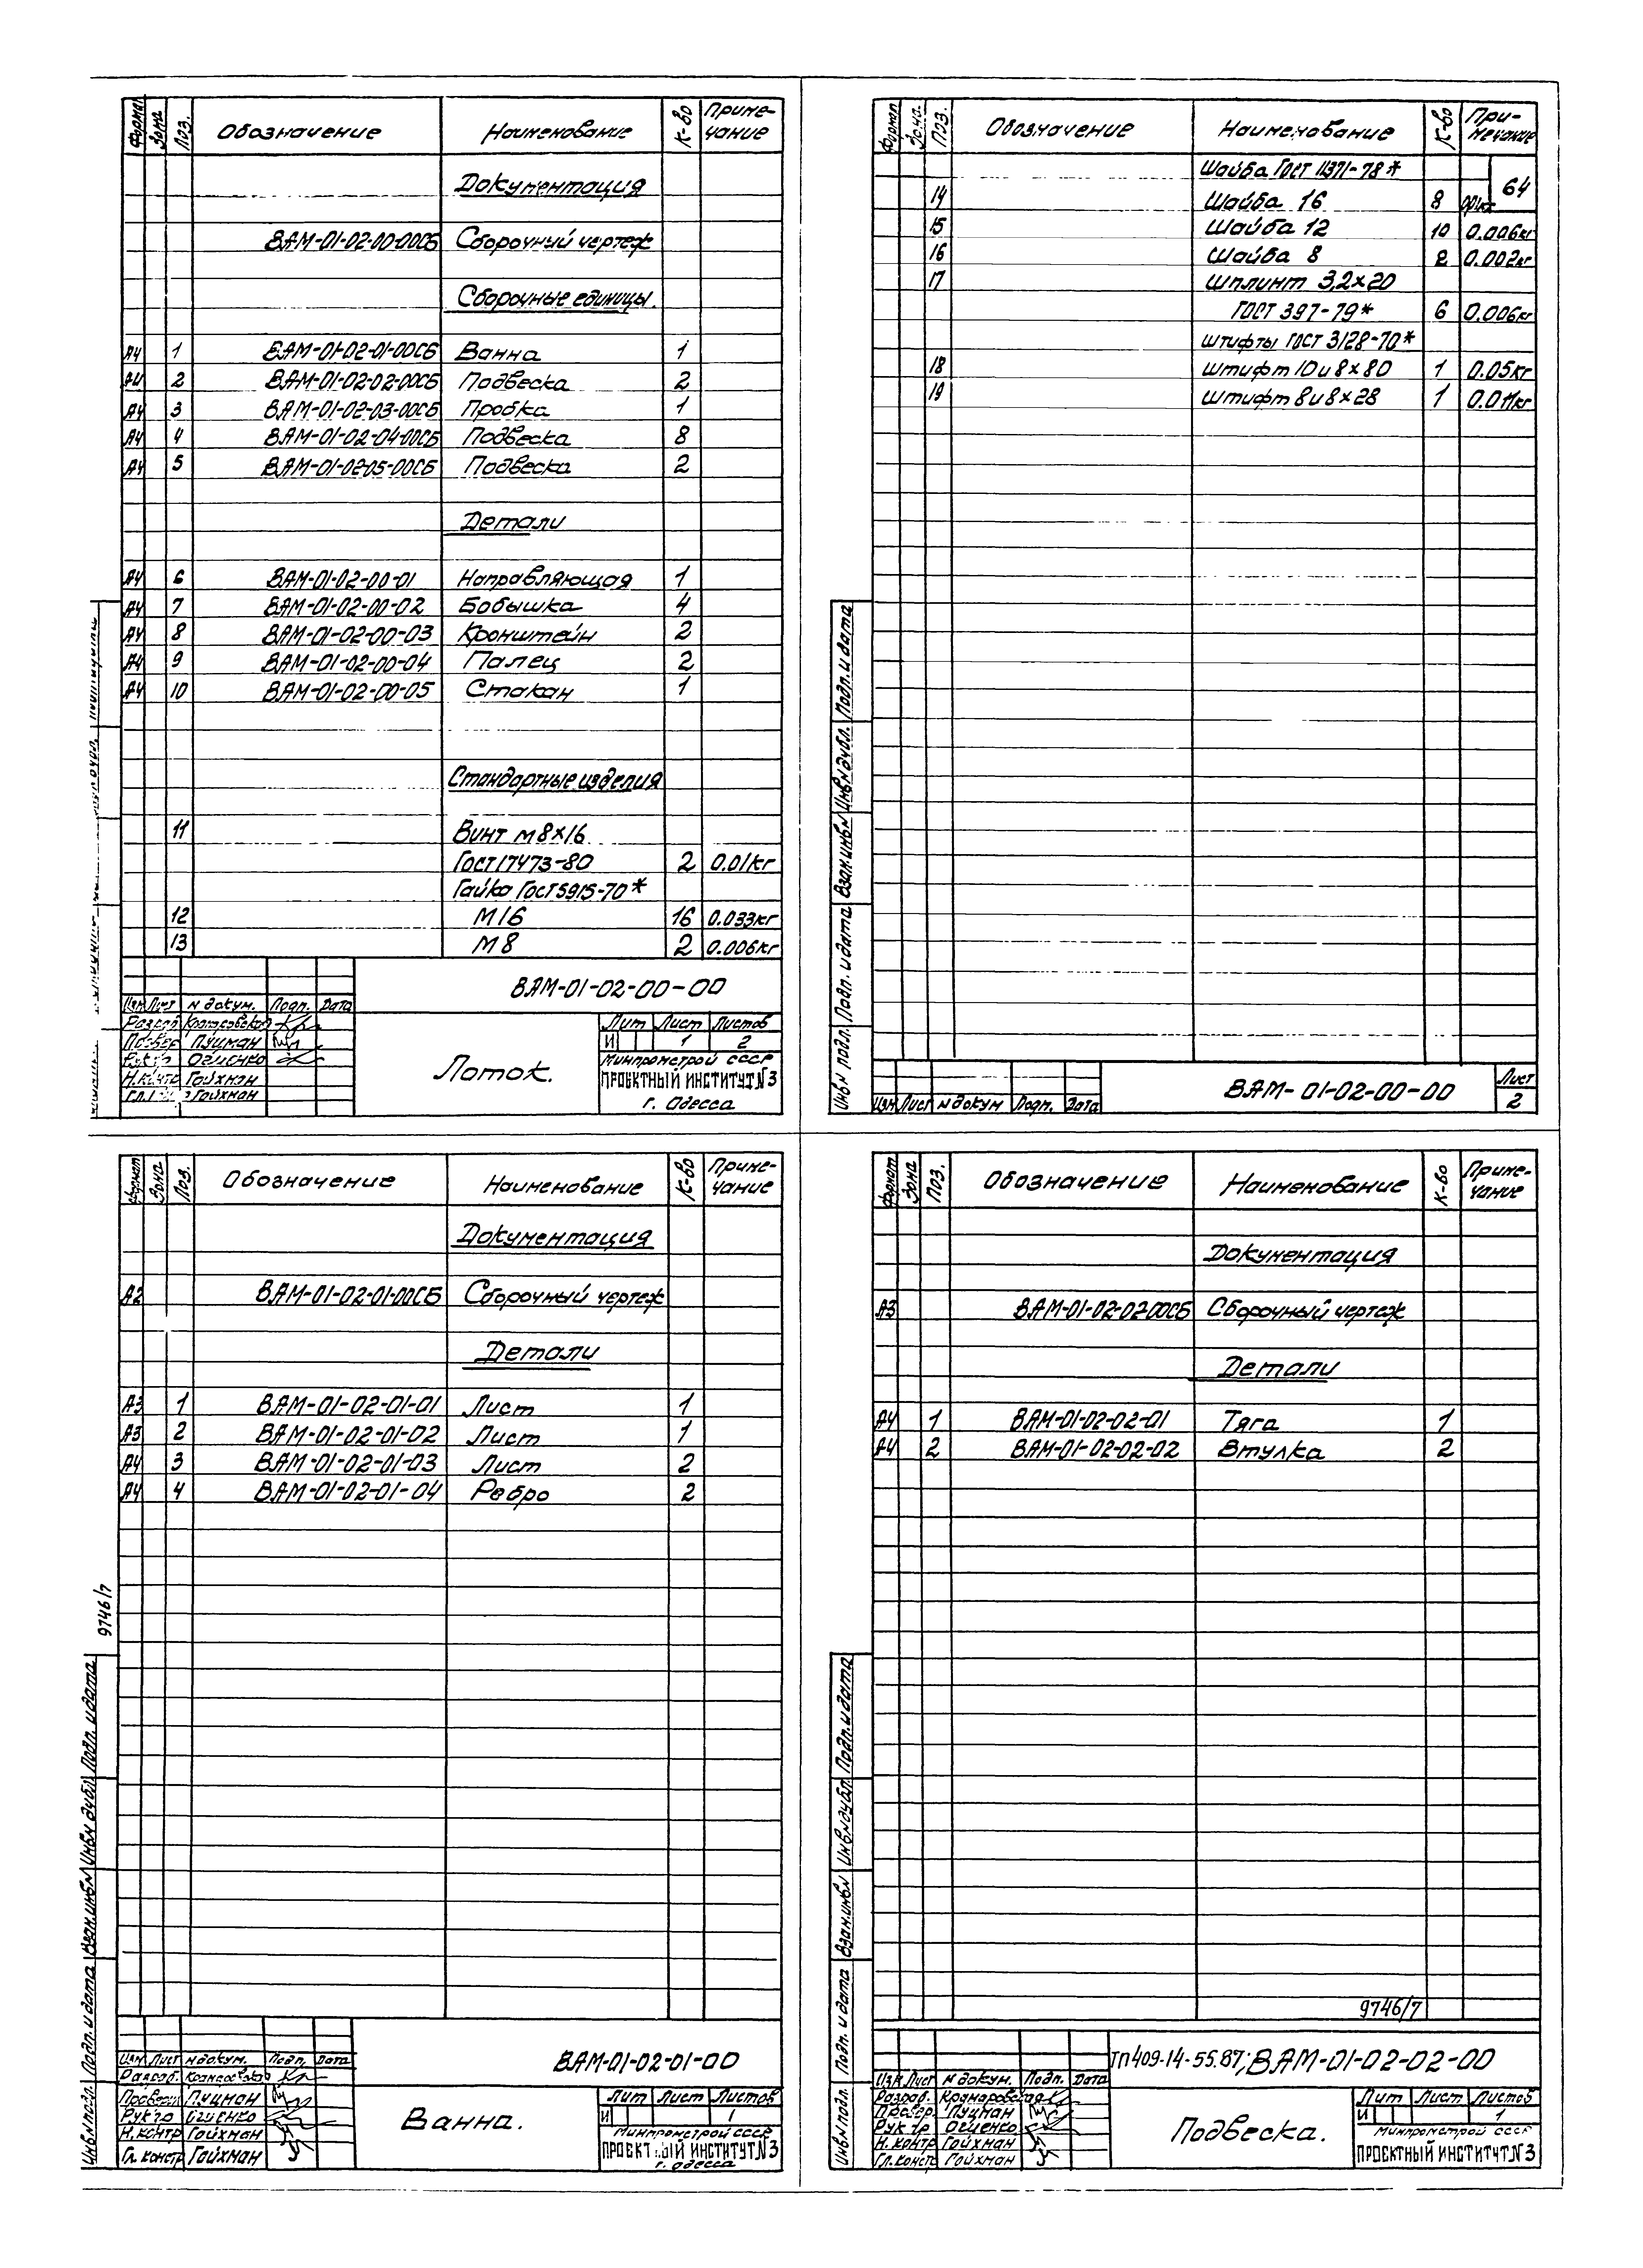 Формат Зона Поз. Обозначение Наименование К-во Приме-
чание
Документация
ВАМ-01-02-00-00СБ Сборочный чертеж
Сборочные единицы.
А4 1 ВАМ-01-02-01-00СБ Ванна 1
А4 2 ВАМ-01-02-02-00СБ Подвеска 2
А4 3 ВАМ-01-02-03-00СБ Пробка 1
А4 4 ВАМ-01-02-04-00СБ Подвеска 8
А4 5 ВАМ-01-02-05-00СБ Подвеска 2
Детали
А4 6 ВАМ-01-02-00-01 Направляющая 1
А4 7 ВАМ-01-02-00-02 Бобышка 4
А4 8 ВАМ-01-02-00-03 Кронштейн 2
А4 9 ВАМ-01-02-00-04 Палец 2
А4 10 ВАМ-01-02-00-05 Стакан 1
Стандартные изделия
11 Винт м8×16
Гост17473-80 2 0.01кг
Гайка Гост5915-70*
12 М16 16 0.033кг
13 М8 2 0.006кг
ВАМ-01-02-00-00
Изм Лист N докум. Подп. Дата
Лоток.
Лит Лист Листов
И 1 2
Минпромстрой СССР
ПРОЕКТНЫЙ ИНСТИТУТ N3
г. Одесса
Пуцман
Рук гр
Н.контр Гойхман
Гойхман
Формат Зона Поз. Обозначение Наименование К-во При-
мечание
64
Шайба ГОСТ 11371-78*
14 Шайба 16 8
15 Шайба 12 10 0.006кг
16 Шайба 8 2 0.002кг
17 Шплинт 3,2×20
ГОСТ 397-79* 6 0.006кг
штифты ГОСТ 3128-70*
18 штифт 10и8×80 1 0.05кг
19 штифт 8и8×28 1 0.011кг
Инв N подл. Подп. и дата Взам.инв N Инв N дубл. Подп. и дата
Изм Лист N докум Подп. Дата
ВАМ-01-02-00-00
Лист
2
Формат Зона Поз. Обозначение Наименование К-во Приме-
чание
Документация
А2 ВАМ-01-02-01-00СБ Сборочный чертеж
Детали
А3 1 ВАМ-01-02-01-01 Лист 1
А3 2 ВАМ-01-02-01-02 Лист 1
А4 3 ВАМ-01-02-01-03 Лист 2
А4 4 ВАМ-01-02-01-04 Ребро 2
9746/7
Инв N подл. Подп. и дата Взам.инв N Инв N дубл Подп. и дата
ВАМ-01-02-01-00
Изм Лист N докум. Подп. Дата
Разраб.
Пуцман
Рук гр
Н.контр Гойхман
Гл. констр Гойхман
Ванна.
Лит Лист Листов
И 1
Минпромстрой СССР
ПРОЕКТНЫЙ ИНСТИТУТ N3
г. Одесса
Формат Зона Поз. Обозначение Наименование К-во Приме-
чание
Документация
А3 ВАМ-01-02-02-00СБ Сборочный чертеж
Детали
А4 1 ВАМ-01-02-02-01 Тяга 1
А4 2 ВАМ-01-02-02-02 Втулка 2
9746/7
Инв N подл. Подп. и дата Взам.инв N Инв N дубл. Подп. и дата
ТП409-14-55.87; ВАМ-01-02-02-00
Изм Лист N докум. Подп. Дата
Разраб.
Пуцман
Рук гр
Н.контр Гойхман
Гл.констр Гойхман
Подвеска.
Лит Лист Листов
И 1
Минпромстрой СССР
ПРОЕКТНЫЙ ИНСТИТУТ N3